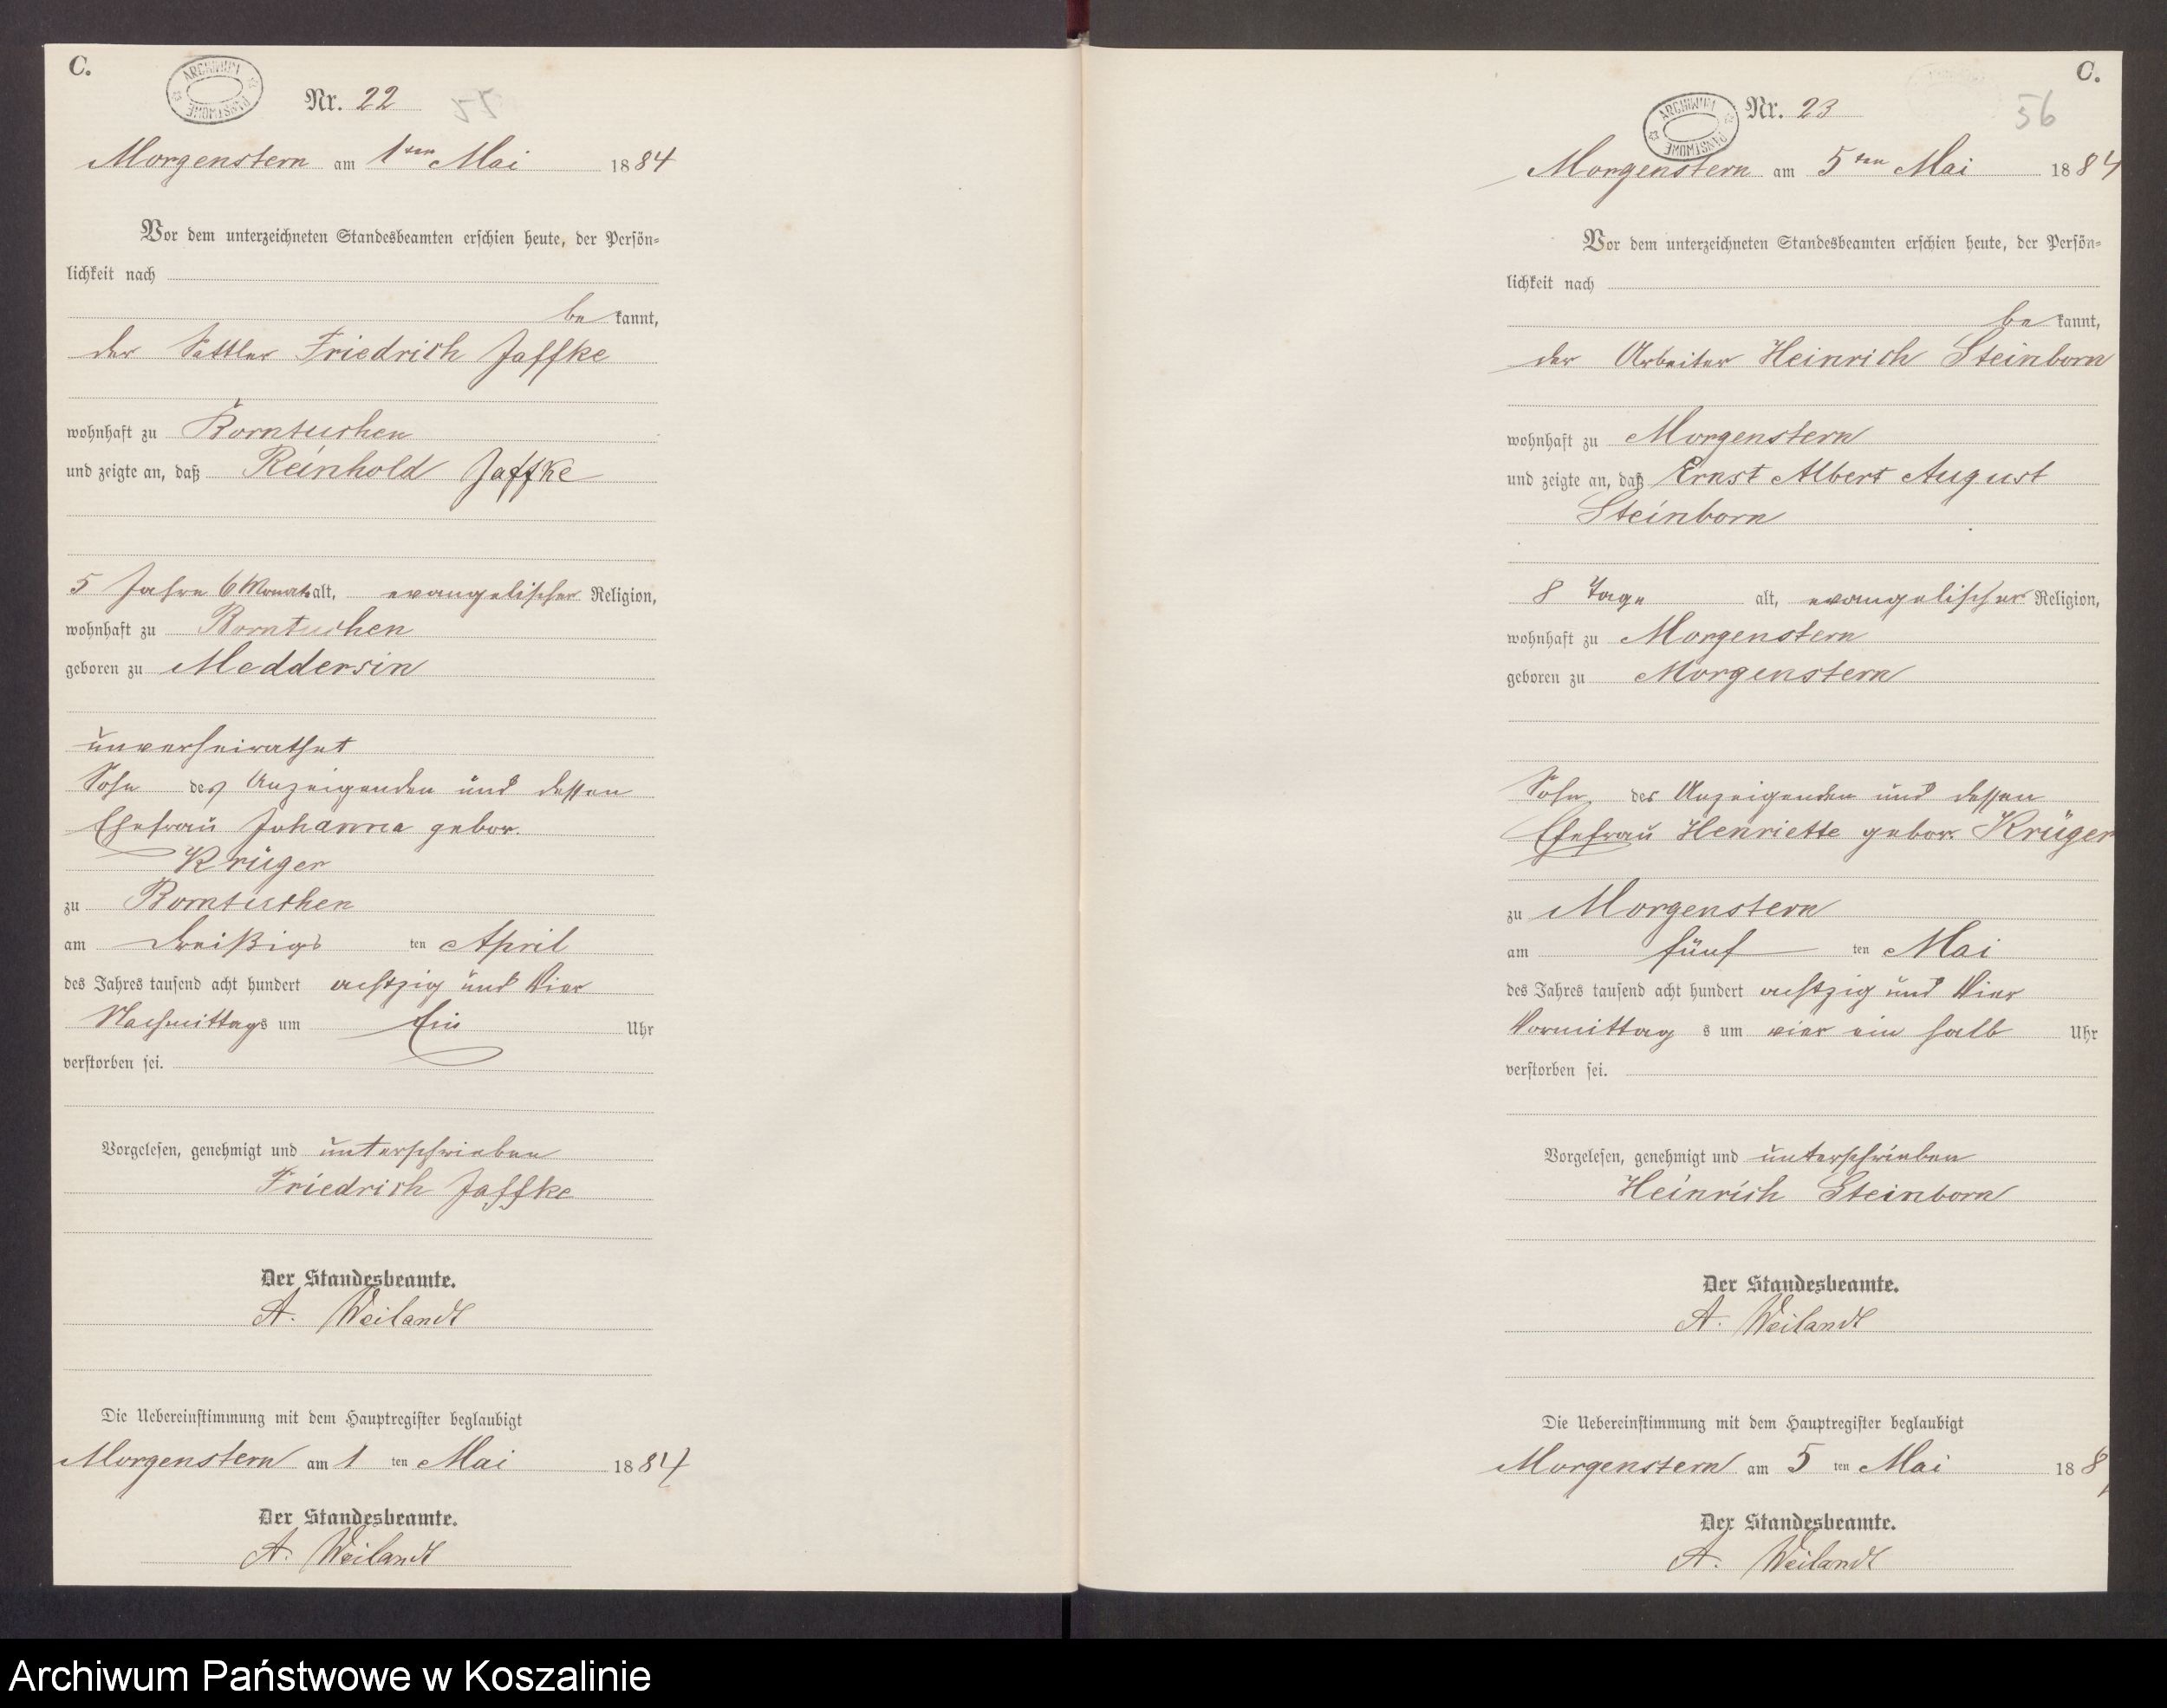 C.
ARCHIWUM PAŃSTWOWE
Nr. 22
Morgenstern am 1ten Mai 1884
Vor dem unterzeichneten Standesbeamten erschien heute, der Persön-
lichkeit nach
be kannt,
der Sattler Friedrich Jaffke
wohnhaft zu Borntuchen
und zeigte an, daß Reinhold Jaffke
5 Jahre 6 Monate alt, evangelischer Religion,
wohnhaft zu Borntuchen
geboren zu Meddersin
unverheirathet
Sohn des Anzeigenden und dessen
Ehefrau Johanna gebor.
Krüger
zu Borntuchen
am dreißigs ten April
des Jahres tausend acht hundert achtzig und vier
Nachmittags um Ein Uhr
verstorben sei.
Vorgelesen, genehmigt und unterschrieben
Friedrich Jaffke
Der Standesbeamte.
A. Weilandt
Die Uebereinstimmung mit dem Hauptregister beglaubigt
Morgenstern am 1 ten Mai 1884
Der Standesbeamte.
A. Weilandt
C.
ARCHIWUM PAŃSTWOWE
Nr. 23
56
Morgenstern am 5ten Mai 1884
Vor dem unterzeichneten Standesbeamten erschien heute, der Persön-
lichkeit nach
be kannt,
der Arbeiter Heinrich Steinborn
wohnhaft zu Morgenstern
und zeigte an, daß Ernst Albert August
Steinborn
8 Tage alt, evangelischer Religion,
wohnhaft zu Morgenstern
geboren zu Morgenstern
Sohn des Anzeigenden und dessen
Ehefrau Henriette gebor. Krüger
zu Morgenstern
am fünf ten Mai
des Jahres tausend acht hundert achtzig und vier
Vormittag s um vier ein halb Uhr
verstorben sei.
Vorgelesen, genehmigt und unterschrieben
Heinrich Steinborn
Der Standesbeamte.
A. Weilandt
Die Uebereinstimmung mit dem Hauptregister beglaubigt
Morgenstern am 5 ten Mai 188
Der Standesbeamte.
A. Weilandt
Archiwum Państwowe w Koszalinie